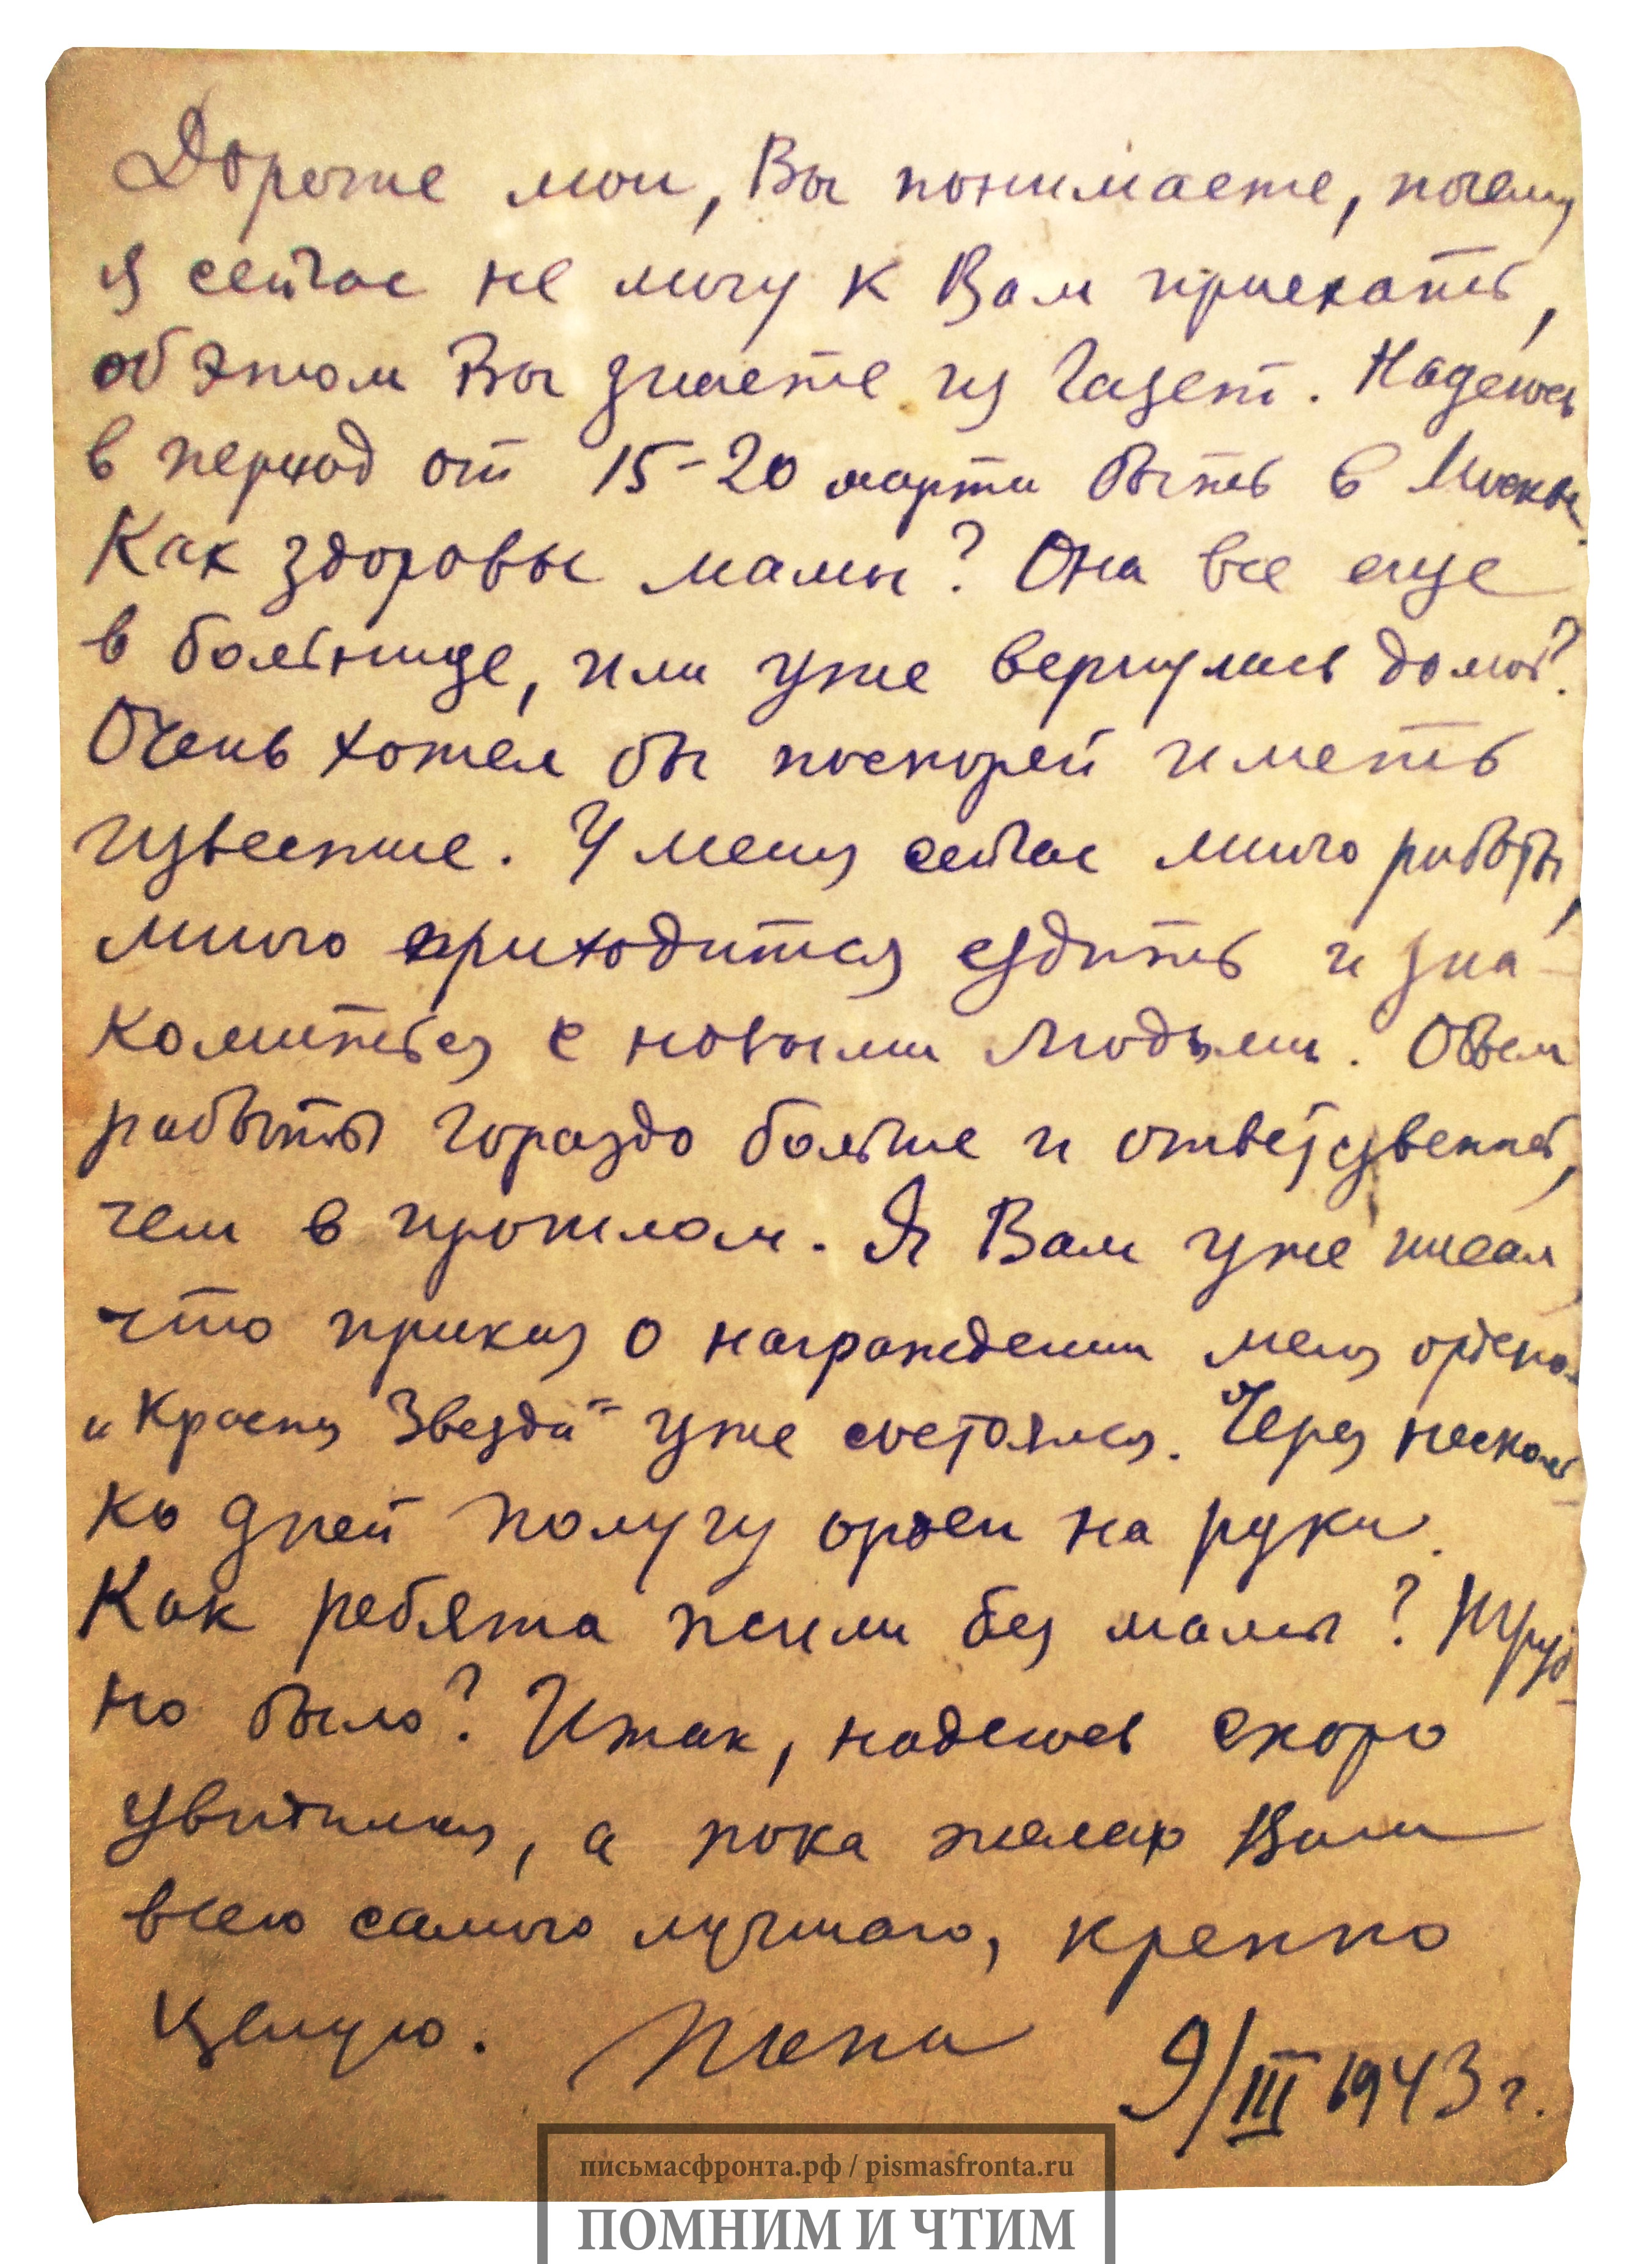 Дорогие мои, Вы понимаете, почему
я сейчас не могу к Вам приехать,
об этом Вы знаете из газет. Надеюсь
в период от 15-20 марта быть в Москве.
Как здоровье мамы? Она все еще
в больнице, или уже вернулась домой?
Очень хотел бы поскорей иметь
известие. У меня сейчас много работы,
много приходится ездить и зна-
комиться с новыми людьми. Объем
работы гораздо больше и ответственней,
чем в прошлом. Я Вам уже писал
что приказ о награждении меня орденом
„Красная Звезда" уже состоялся. Через несколь-
ко дней получу орден на руки.
Как ребята жили без мамы? Труд-
но было? Итак, надеюсь скоро
увидимся, а пока желаю Вам
всего самого лучшаго, крепко
целую.
9/III 1943 г.
письмасфронта.рф / pismasfronta.ru
ПОМНИМ И ЧТИМ